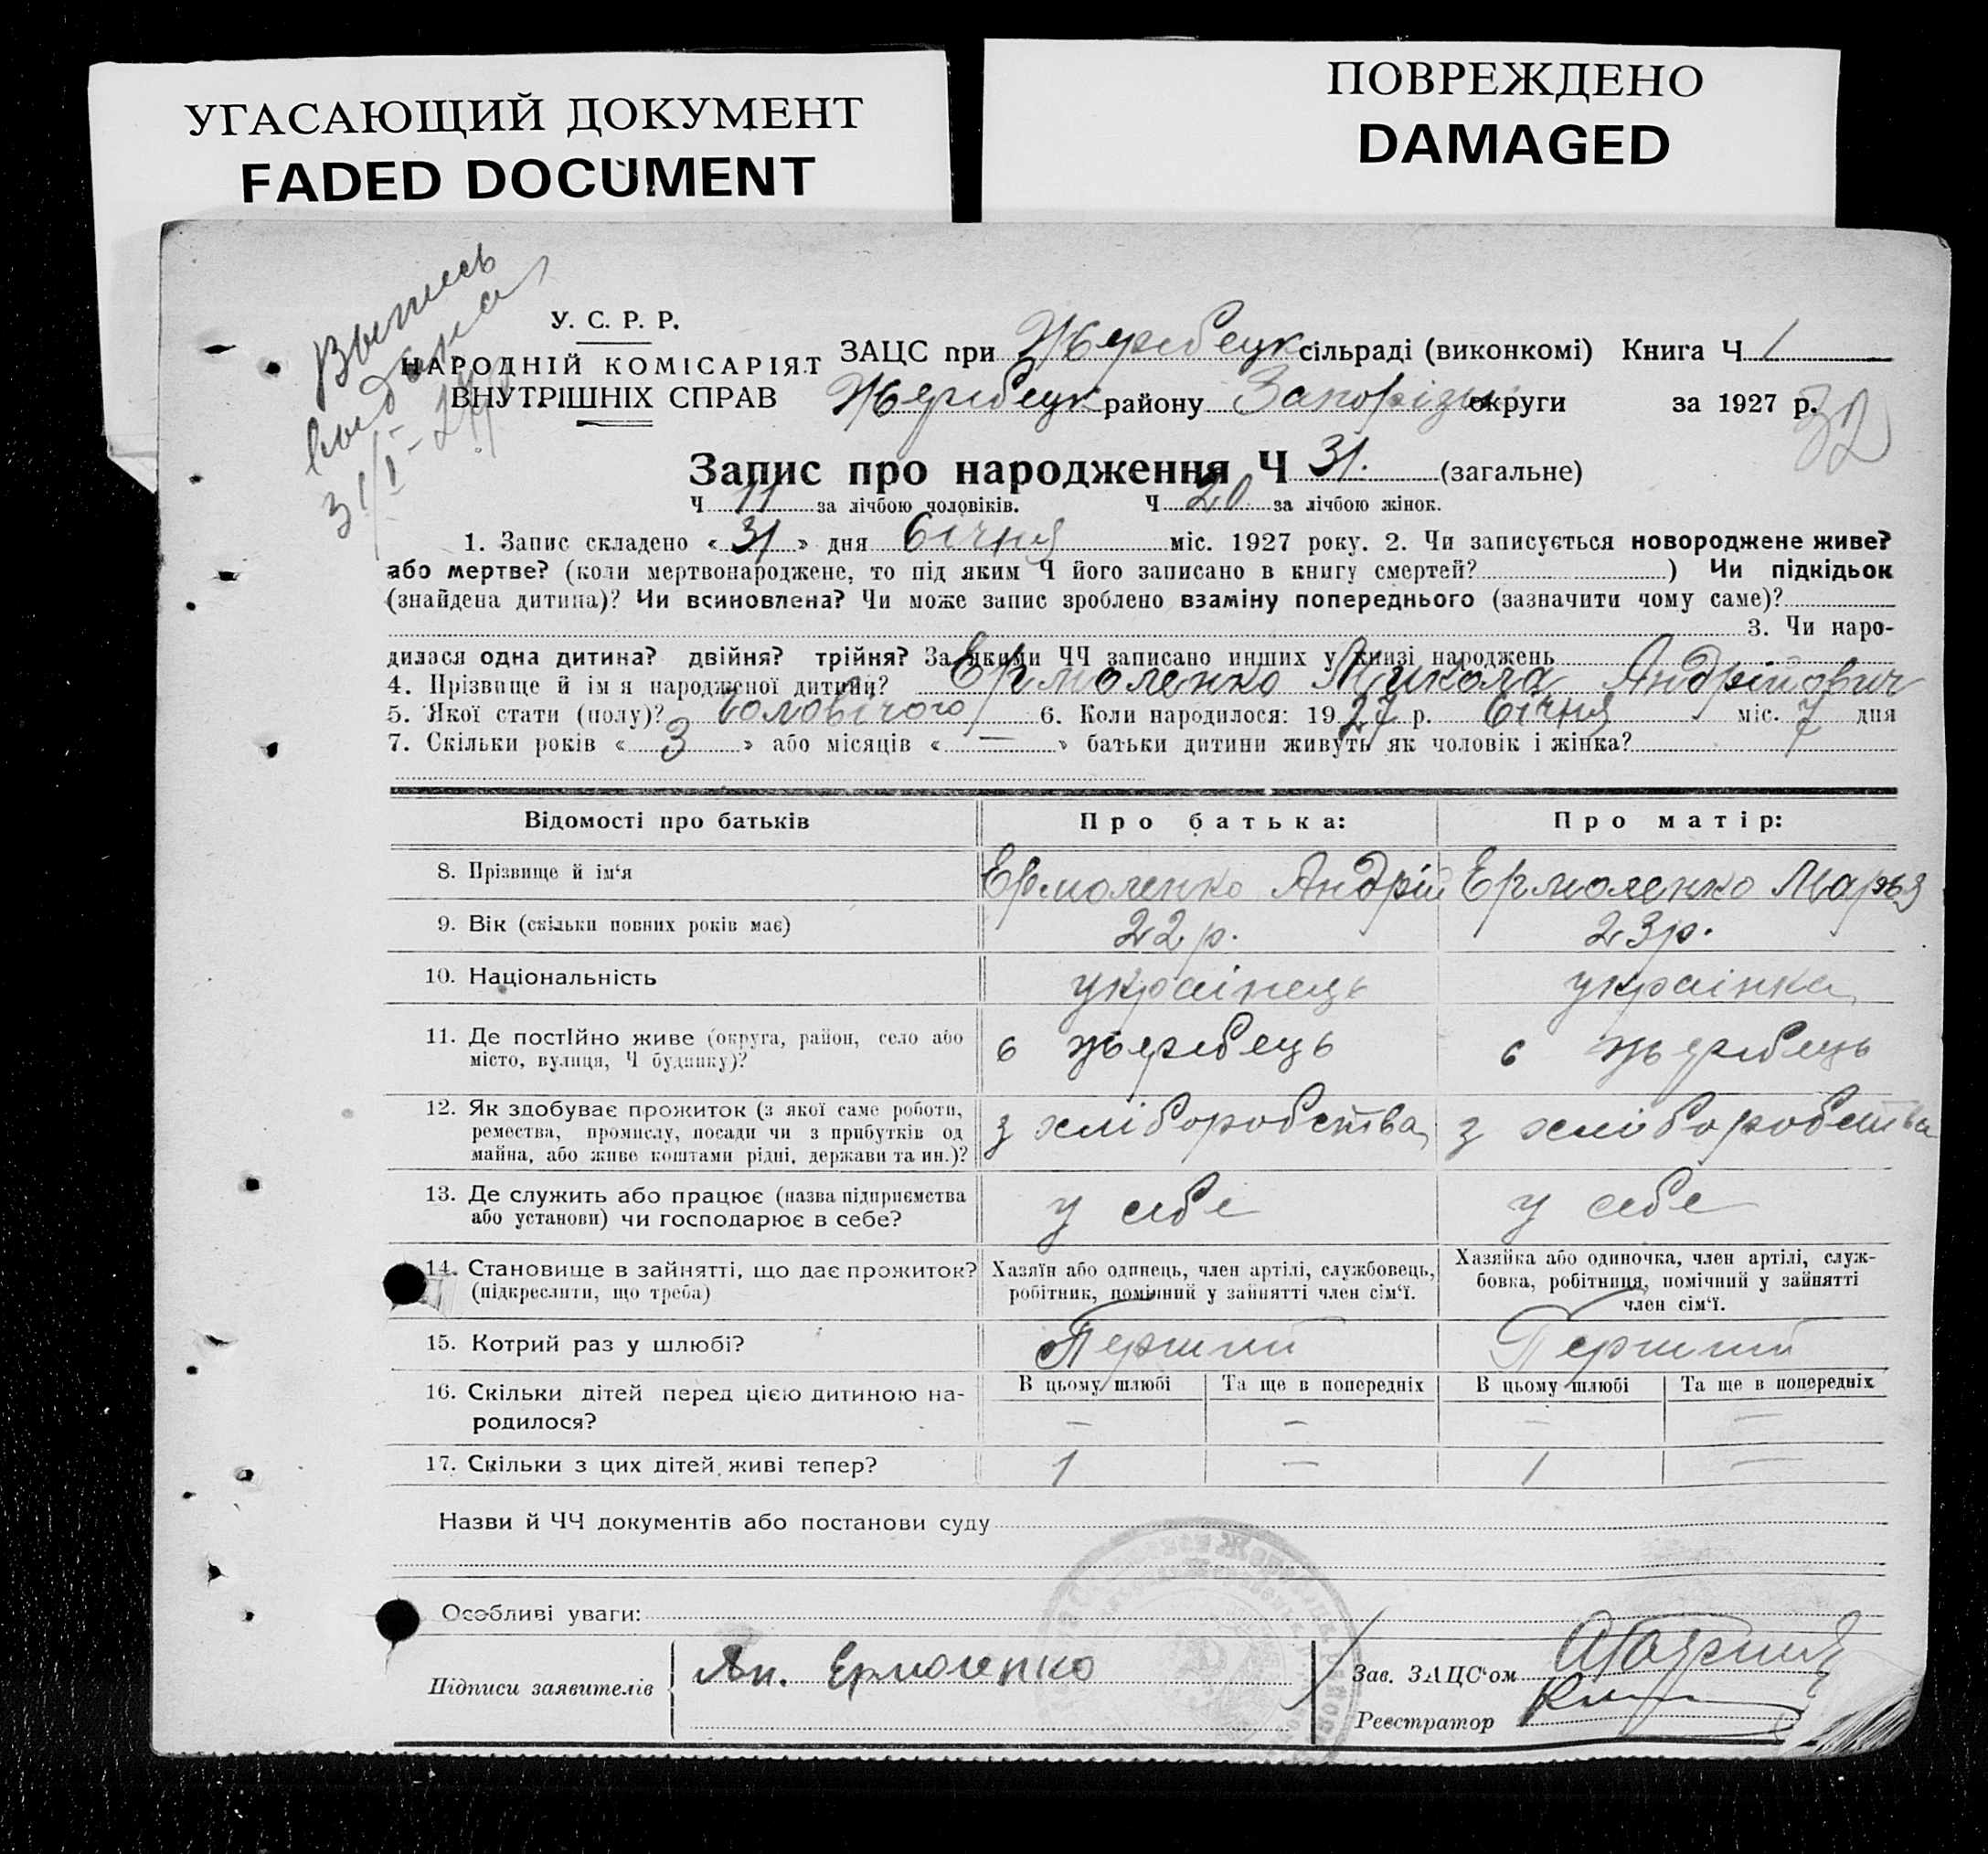 УГАСАЮЩИЙ ДОКУМЕНТ
FADED DOCUMENT
ПОВРЕЖДЕНО
DAMAGED
Выпись
выдана
31/I-
У. С. Р. Р.
НАРОДНІЙ КОМІСАРІЯТ
ВНУТРІШНІХ СПРАВ
ЗАЦС при Жеребецк сільраді (виконкомі) Книга Ч 1
Жеребецк району Запорізьк округи за 1927 р.
32
Запис про народження Ч 31. (загальне)
Ч 11 за лічбою чоловіків. Ч 20 за лічбою жінок.
1. Запис складено « 31 » дня Січня міс. 1927 року. 2. Чи записується новороджене живе?
або мертве? (коли мертвонароджене, то під яким Ч його записано в книгу смертей? ) Чи підкідьок
(знайдена дитина)? Чи всиновлена? Чи може запис зроблено взаміну попереднього (зазначити чому саме)?
3. Чи наро-
дилася одна дитина? двійня? трійня? За якими ЧЧ записано инших у книзі народжень
4. Прізвище й ім я народженої дитини? Ермоленко Микола Андрійович
5. Якої стати (полу)? Чоловічого 6. Коли народилося: 1927 р. Січня міс. 7 дня
7. Скільки років « 3 » або місяців « — » батьки дитини живуть як чоловік і жінка?
Відомості про батьків Про батька: Про матір:
8. Прізвище й ім‘я Ермоленко Андрій Ермоленко Марья
9. Вік (скільки повних років має) 22 р. 23 р.
10. Національність українець українка
11. Де постійно живе (округа, район, село або
місто, вулиця, Ч будинку)? с жеребець с жеребець
12. Як здобуває прожиток (з якої саме роботи,
ремества, промислу, посади чи з прибутків од
майна, або живе коштами рідні, держави та ин.)? з хліборобства з хліборобства
13. Де служить або працює (назва підприємства
або установи) чи господарює в себе? у себе у себе
14. Становище в зайнятті, що дає прожиток?
(підкреслити, що треба)
Хазяїн або одинець, член артілі, службовець,
робітник, помічний у зайнятті член сім‘ї.
Хазяйка або одиночка, член артілі, служ-
бовка, робітниця, помічний у зайнятті
член сім‘ї.
15. Котрий раз у шлюбі? Перший Перший
16. Скільки дітей перед цією дитиною на-
родилося?
В цьому шлюбі Та ще в попередніх В цьому шлюбі Та ще в попередніх
— — — —
17. Скільки з цих дітей живі тепер? 1 — 1 —
Назви й ЧЧ документів або постанови суду
Особливі уваги:
Підписи заявителів Ермоленко
Зав. ЗАЦС‘ом
Реєстратор